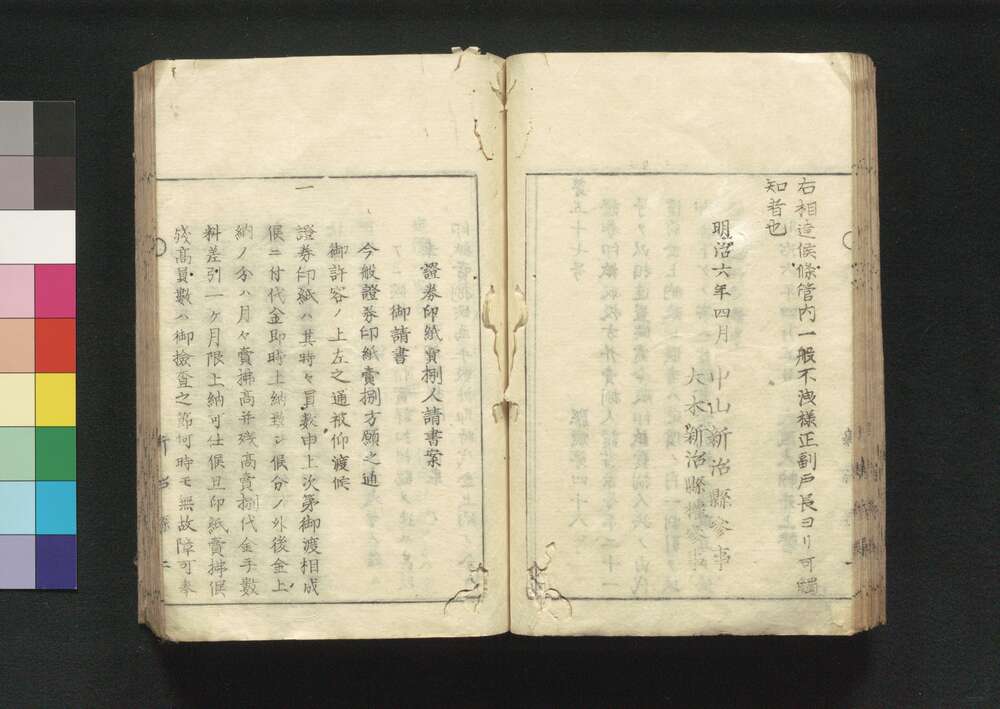 右相達候條管内一般不洩様正副戸長ヨリ可觸
知者也
明治六年四月 中山新治縣參事
大木新治縣權參事
證券印紙賣捌人請書案
御請書
今般證券印紙賣捌方願之通
御許容ノ上左之通被仰渡候
一
證券印紙ハ其時々員數申上次第御渡相成
候ニ付代金即時上納致シ候分ノ外後金上
納ノ分ハ月々賣捌高并残高賣捌代金手數
料差引一ヶ月限上納可仕候且印紙賣捌候
残高員數ハ御撿査之節何時モ無故障可奉